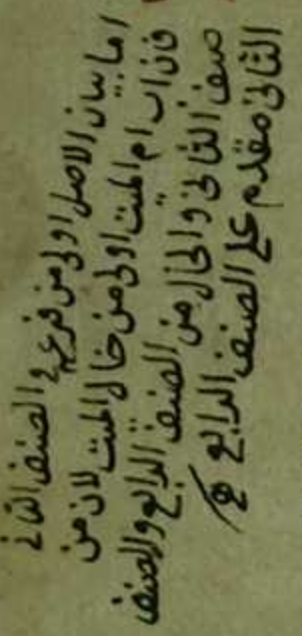 اما بيان الاصل اولى من فرعه في الصنف الثانى
فان اب ام الميت اولى من خال الميت لان من
صنف الثانى والخال من الصنف الرابع والصنف
الثانى مقدم على الصنف الرابع